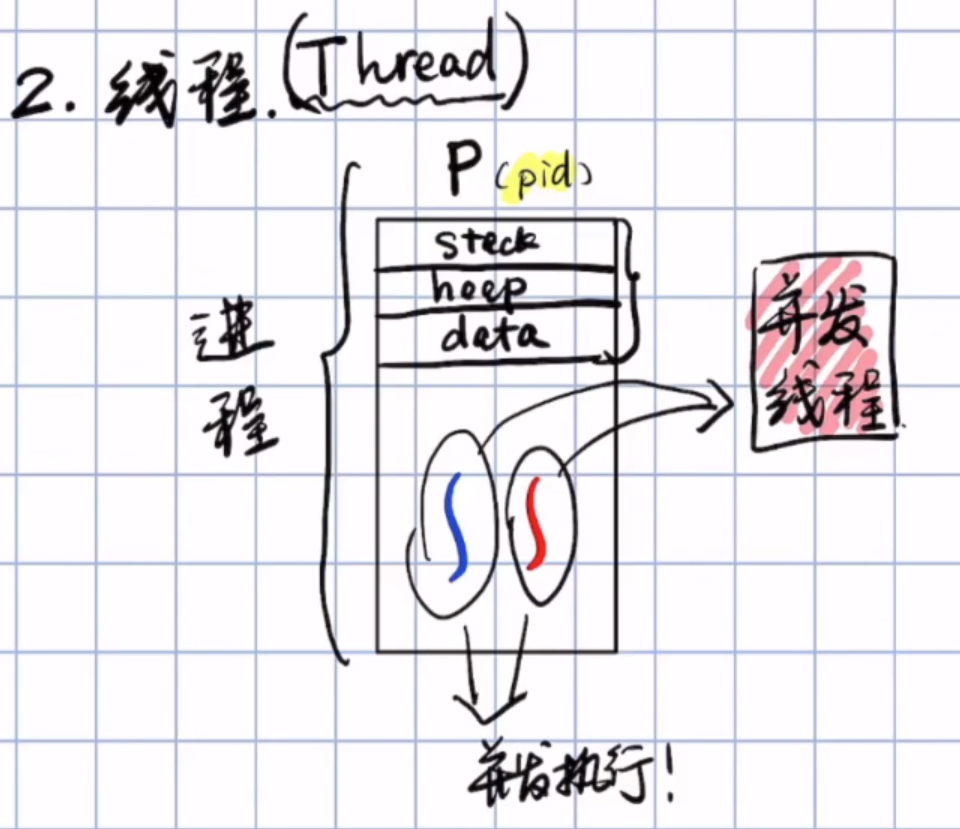 2. 线程. (Thread)
P (pid)
steck
heep
data
进
程
并发
线程
并发执行!